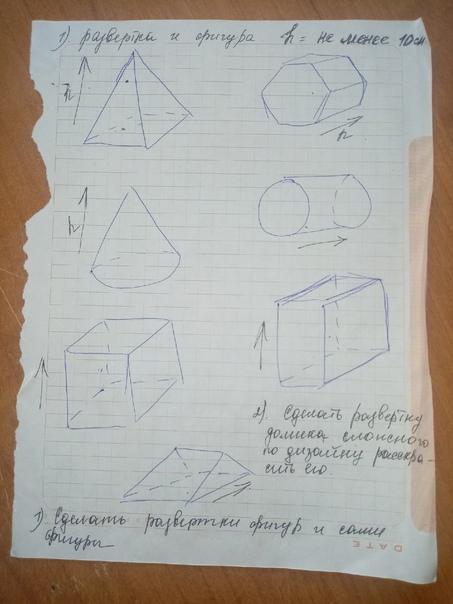 1) развертки и фигура h = не менее 10 см
h
h
h
2). Сделать развертку
домика сложного
по дизайну раскра-
сить его.
1) Сделать развертки фигур и сами
фигуры
DATE